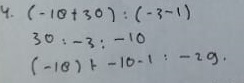 4. (-10+30) : (-3-1)
30 : -3 : -10
(-10) + -10-1 : -29.